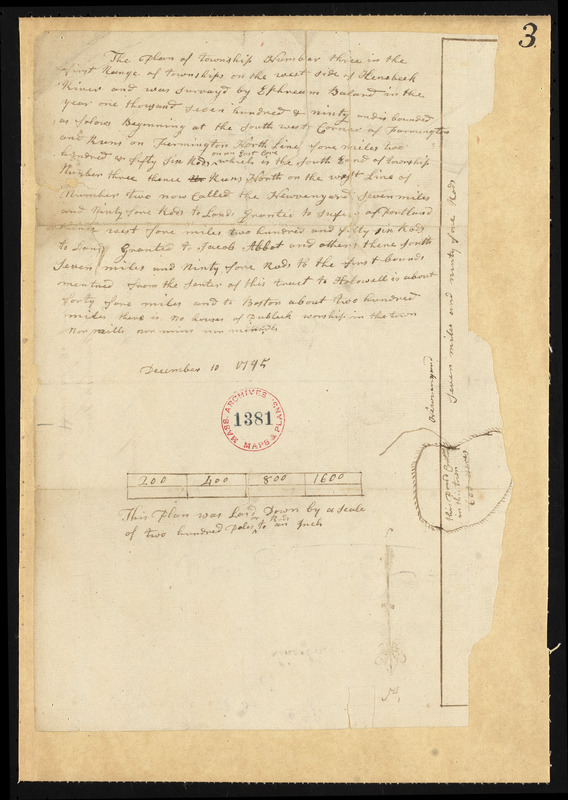 3
The Plan of township Number three in the
first Range of townships on the west side of Kenebeck
River and was survayd by Ephream Balard in the
year one thousand seven hundred & ninty and is bounded
as folows Beginning at the South west Corner of farmington
and Runs on Farmington North Line four miles two
hundred & fifty six Rods on an East Line which is the South End of township
Number three thence Runs North on the west Line of
Number two now Called the Hewvenyard Seven miles
and Ninty fore Rods to Lands Granted to of portland
west fore miles two hundred and fifty six Rods
to Land Granted to Jacob Abbot and others thence South
Seven miles and Ninty fore Rods to the first bounds
mentined from the Senter of this tract to Holowell is about
forty fore miles and to Boston about two hundred
miles there is No houses of Publeck worship in the town
Nor mills nor mines nor minerals
December 10 1795
MASS. ARCHIVES
1381
MAPS & PLANS
200 400 800 1600
This Plan was Laid Down by a Scale
of two hundred Poles or Rods to an Inch
Seven miles and ninty fore Rods
this Pond
in the town
600 acres